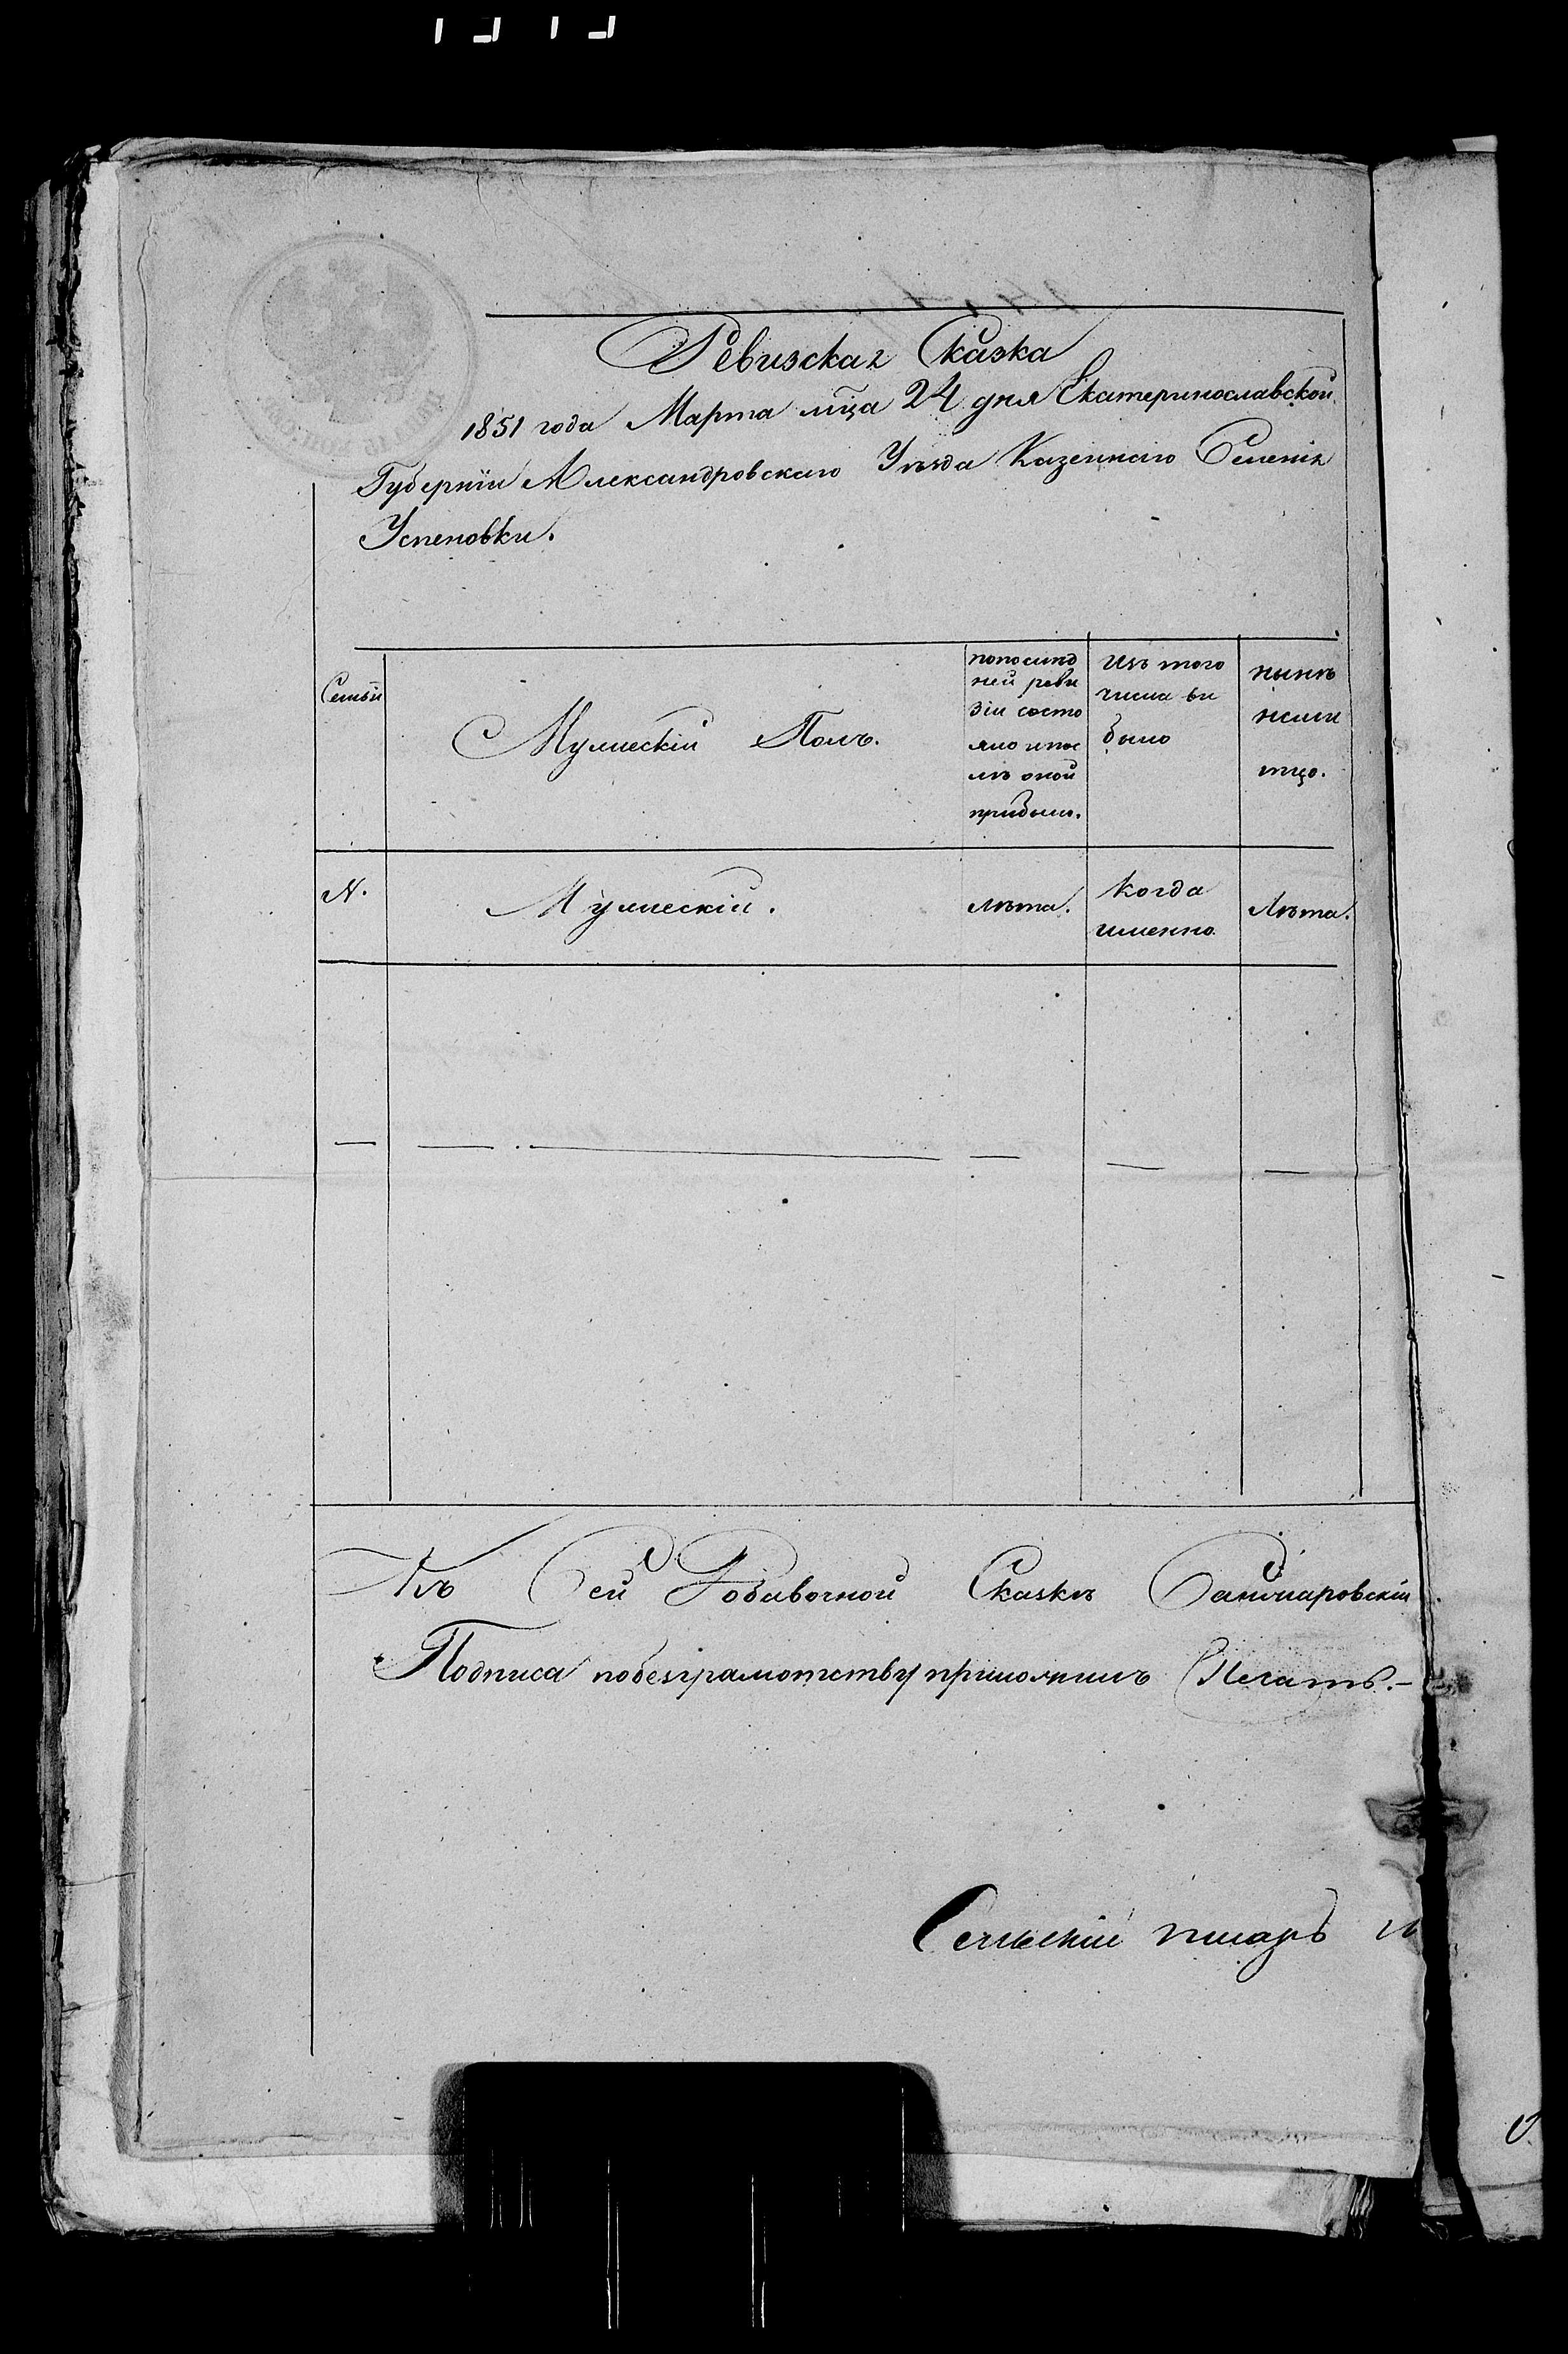 Ревизская Сказка
1851 года Марта мца 24 дня Екатеринославской
Губернiи Александровскаго Уѣзда Казеннаго Селенiя
Успеновки.
Семьи
Мужескiй Полъ.
попослед
ней реви
зiи состо
яло и пос
лѣ оной
прибыло.
Изъ того
числа вы
было
нынѣ
на ли
цо.
N.
Мужескiй.
лѣта.
Когда
именно
Лѣта.
Къ Сей Добавочной Сказкѣ
Подписа побезграмотству приложилъ Печать.-
Сельскiй писарь